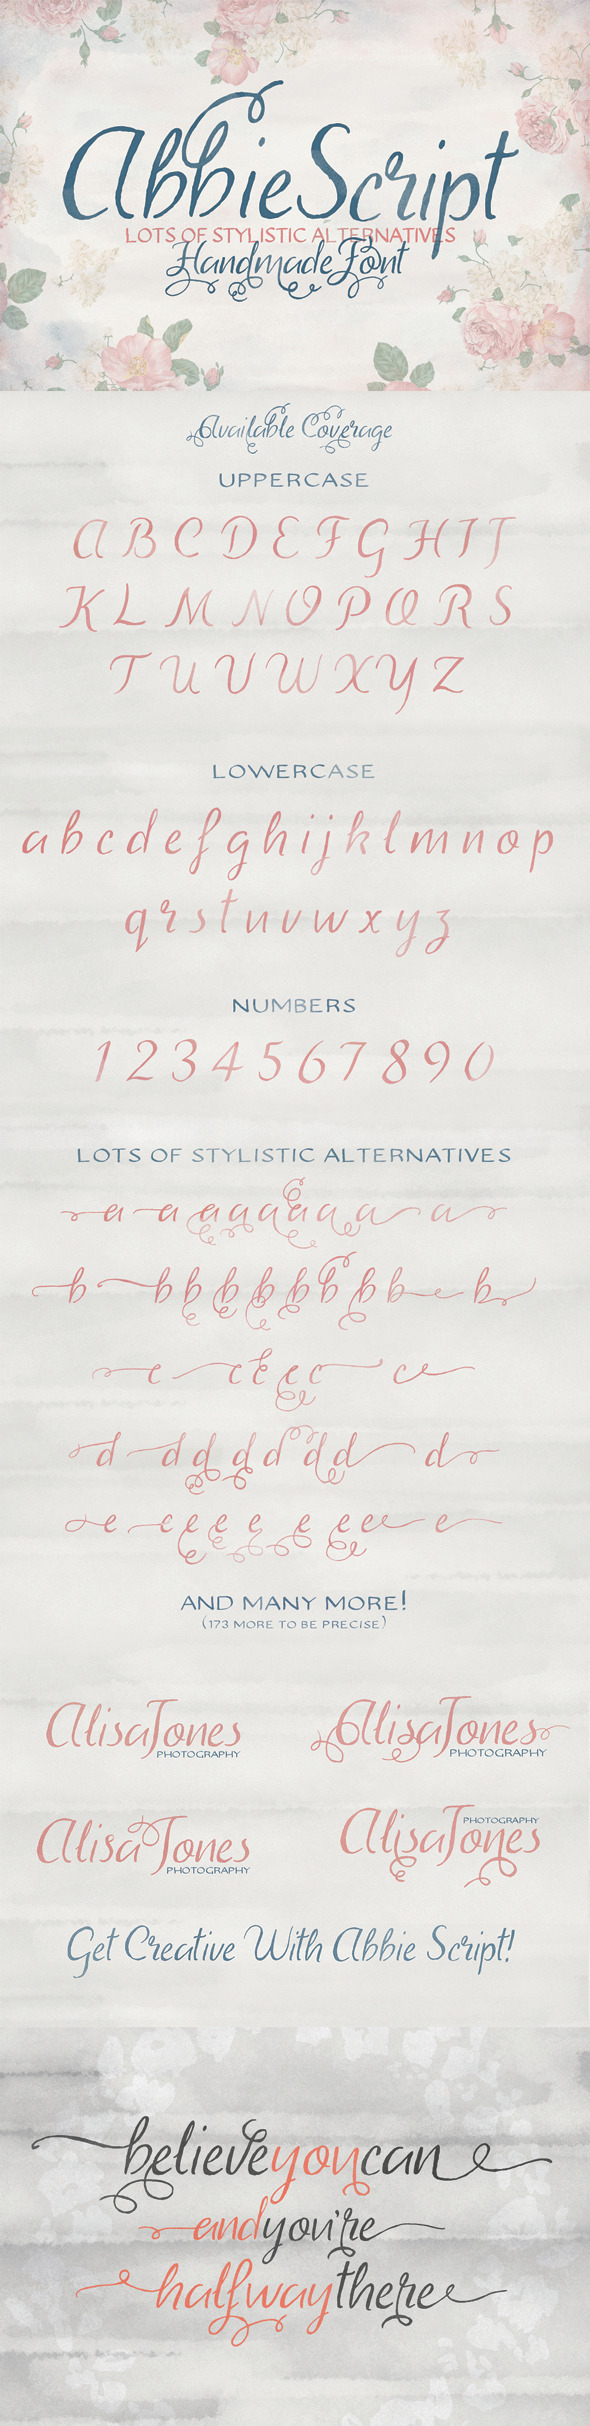 Abbie Script
LOTS OF STYLISTIC ALTERNATIVES
Handmade Font
Available Coverage
UPPERCASE
A B C D E F G H I J
K L M N O P Q R S
T U V W X Y Z
LOWERCASE
a b c d e f g h i j k l m n o p
q r s t u v w x y z
NUMBERS
1 2 3 4 5 6 7 8 9 0
LOTS OF STYLISTIC ALTERNATIVES
a a a a a a a a a
b b b b b b b b b b
c c c c c c
d d d d d d d d
e e e e e e e e e
AND MANY MORE!
(173 MORE TO BE PRECISE)
Alisa Jones
PHOTOGRAPHY
Alisa Jones
PHOTOGRAPHY
Alisa Jones
PHOTOGRAPHY
PHOTOGRAPHY
Alisa Jones
Get Creative With Abbie Script!
believe you can
and you're
halfway there